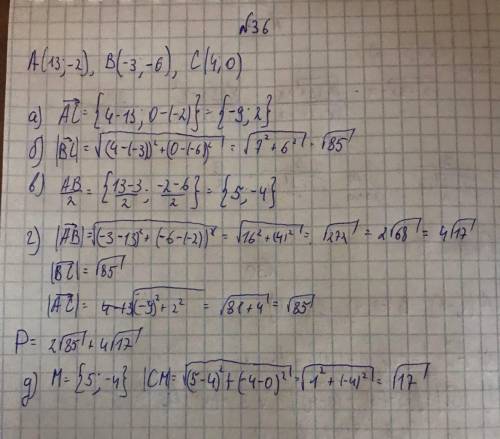 №36
A(13;-2), B(-3,-6), C(4,0)
а) AC = {4-13; 0-(-2)} = {-9; 2}
б) |BC| = √((4-(-3))² + (0-(-6))²) = √(7² + 6²) = √85
в) AB/2 = {(13-3)/2; (-2-6)/2} = {5; -4}
г) |AB| = √((-3-13)² + (-6-(-2))²) = √(16² + (4)²) = √272 = 2√68 = 4√17
|BC| = √85
|AC| = √((-9)² + 2²) = √(81+4) = √85
P = 2√85 + 4√17
д) M = {5; -4} |CM| = √((5-4)² + (-4-0)²) = √(1² + (-4)²) = √17